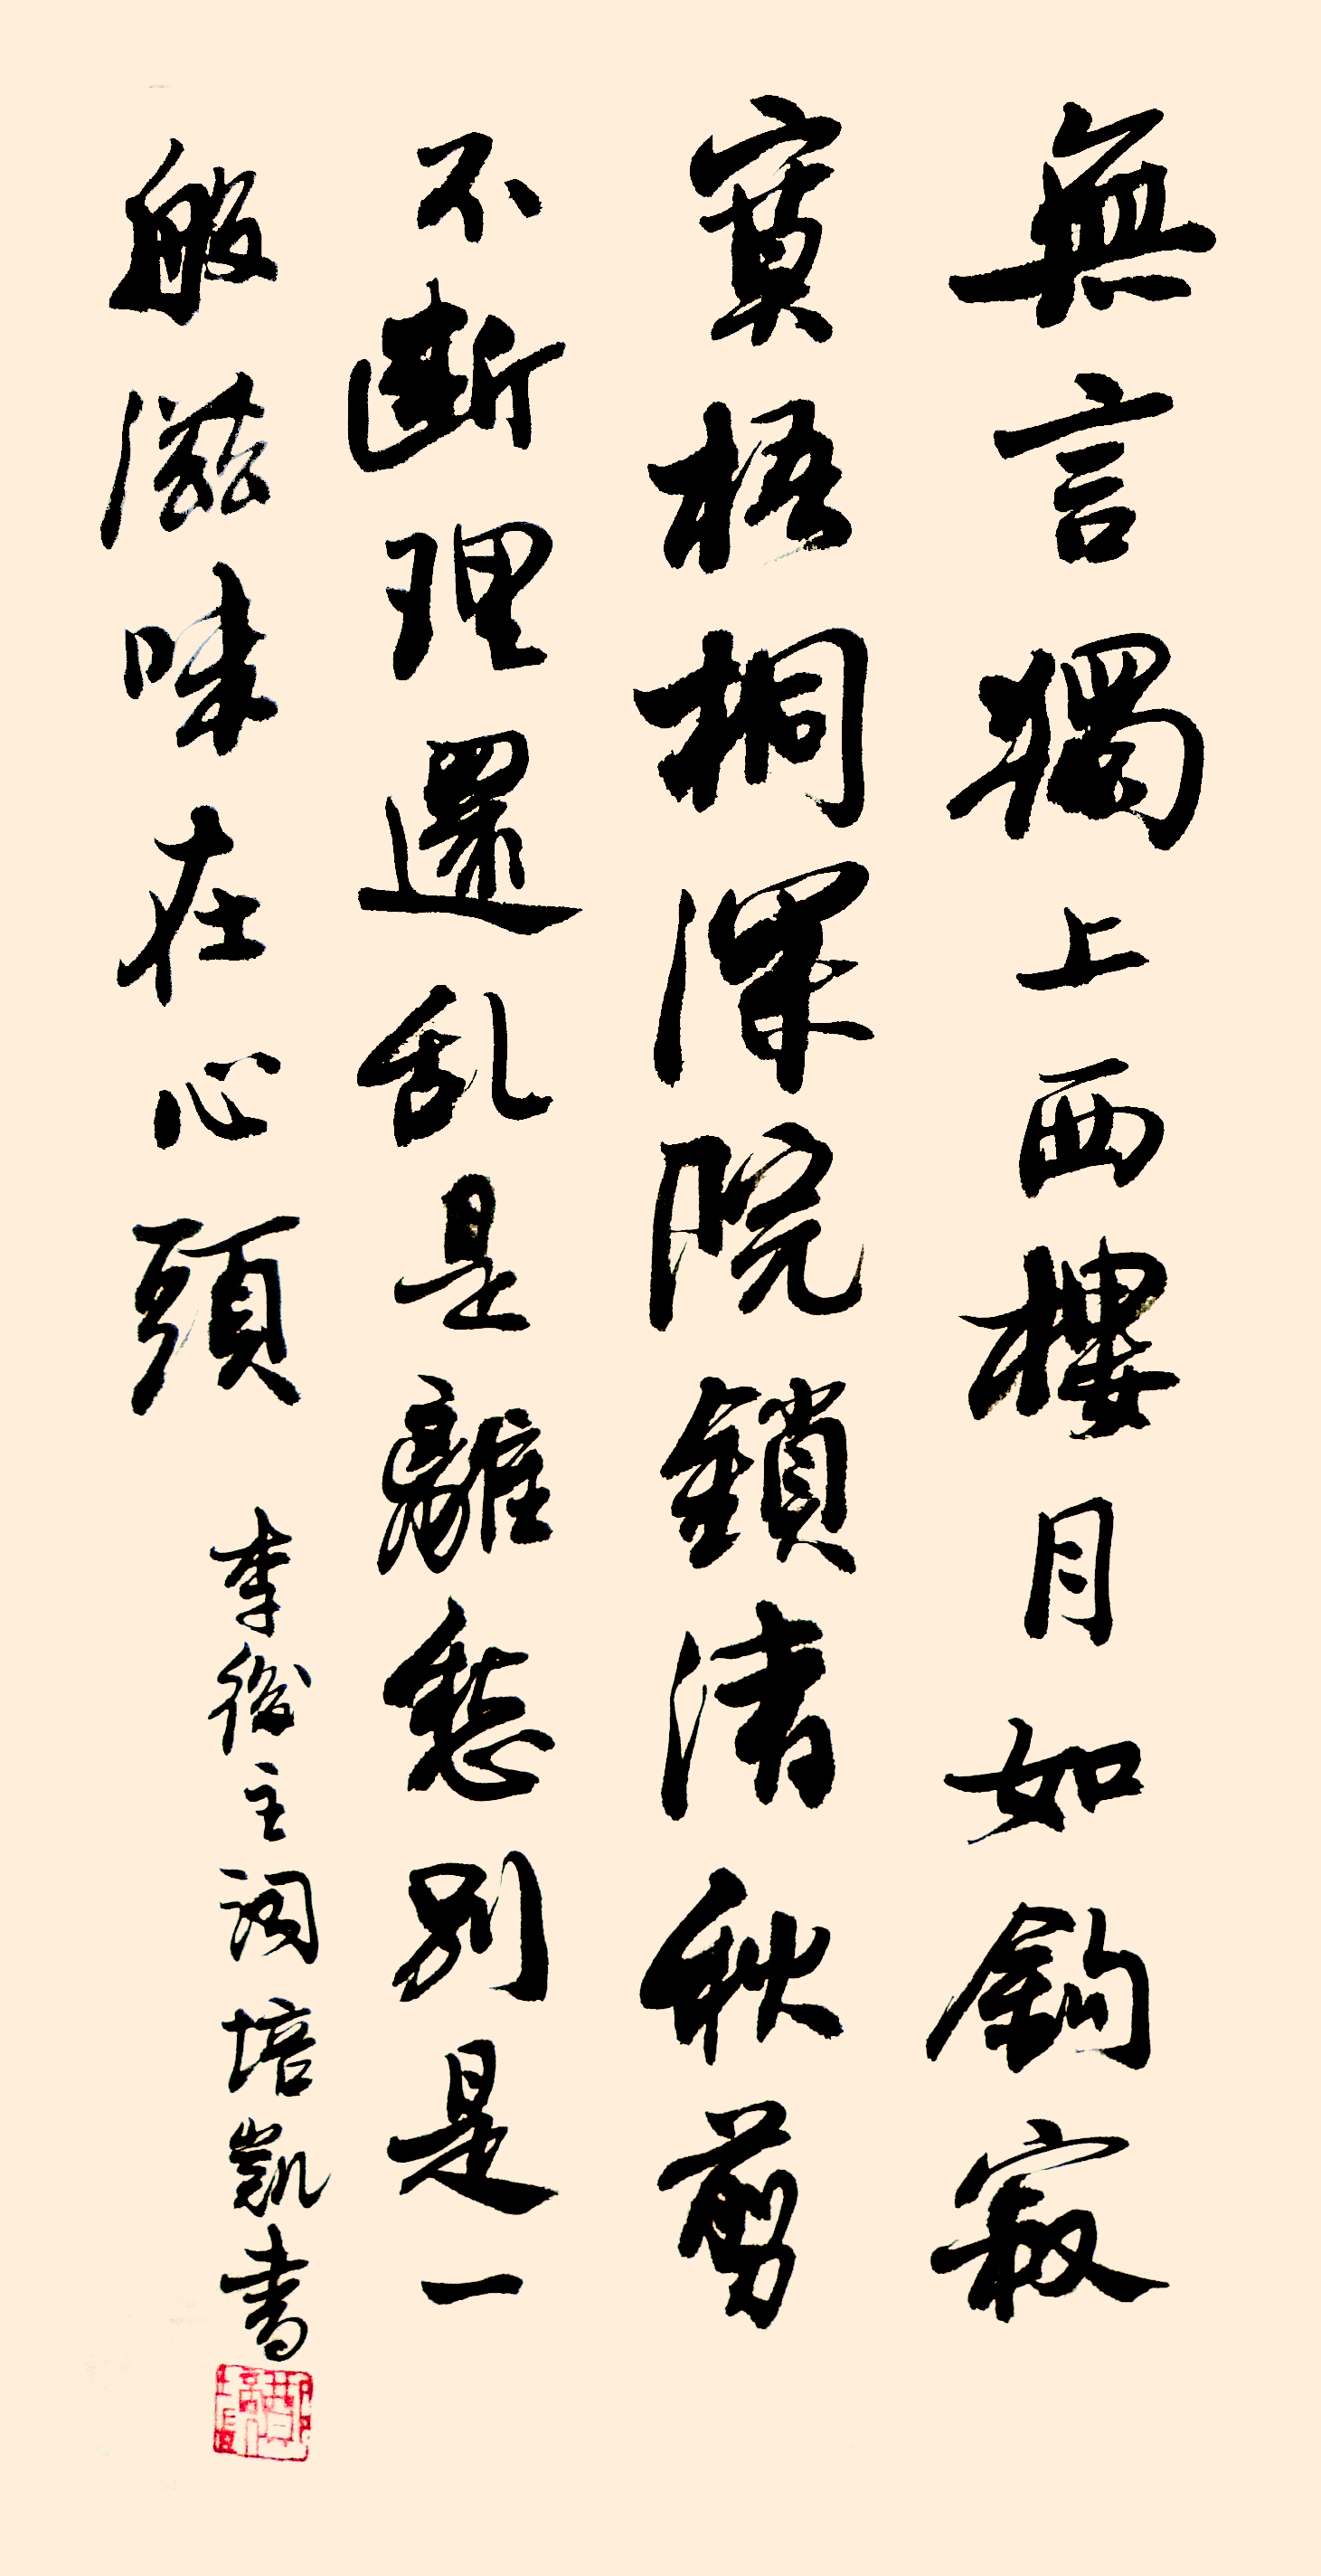 無言獨上西樓月如鈎寂
寞梧桐深院鎖清秋剪
不斷理還乱是離愁別是一
般滋味在心頭
李後主词培凱書